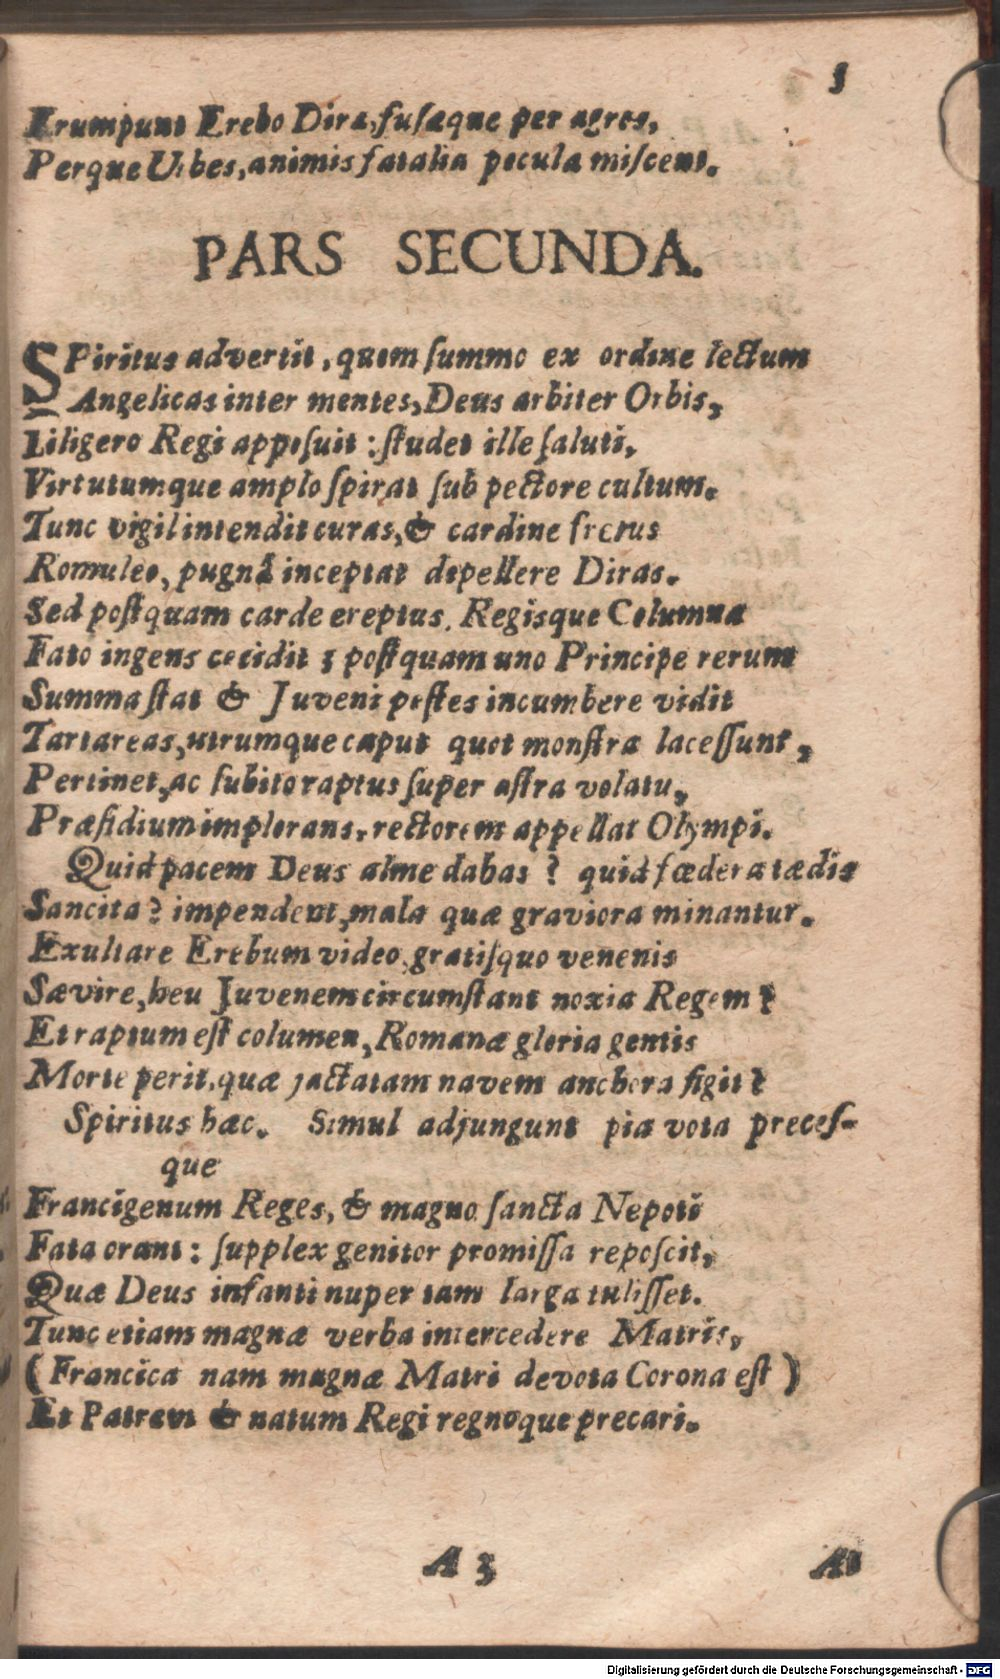 5
Erumpunt Erebo Diræ, fuſæque per agros,
Perque Urbes, animis fatalia pocula miſcent.
PARS SECUNDA.
SPiritus advertit, quem ſummo ex ordine lectum
Angelicas inter mentes, Deus arbiter Orbis,
Liligero Regi appoſuit: ſtudet ille ſaluti,
Virtutumque amplo ſpirat ſub pectore cultum.
Tunc vigil intendit curas, & cardine fretus
Romuleo, pugnâ inceptat depellere Diras.
Sed poſtquam carde ereptus, Regisque Columna
Fato ingens cecidit; poſtquam uno Principe rerum
Summa ſtat & Juveni peſtes incumbere vidit
Tartareas, utrumque caput quot monſtra laceſſunt,
Pertimet, ac ſubito raptus ſuper aſtra volatu,
Præſidium implorans, rectorem appellat Olympi.
Quid pacem Deus alme dabas? quid fœdera tædis
Sancita? impendent, mala quæ graviora minantur.
Exultare Erebum video, gratiſquo venenis
Sævire, heu Juvenem circumſtant noxia Regem?
Et raptum eſt columen, Romanæ gloria gentis
Morte perit, quæ jactatam navem anchora figit?
Spiritus hæc. Simul adjungunt pia vota preceſ-
que
Francigenum Reges, & magno ſancta Nepoti
Fata orant: ſupplex genitor promiſſa repoſcit,
Quæ Deus infanti nuper tam larga tuliſſet.
Tunc etiam magnæ verba intercedere Matris,
(Francica nam magnæ Matri devota Corona eſt)
Et Patrem & natum Regi regnoque precari.
A 3
At
Digitalisierung gefördert durch die Deutsche Forschungsgemeinschaft - DFG